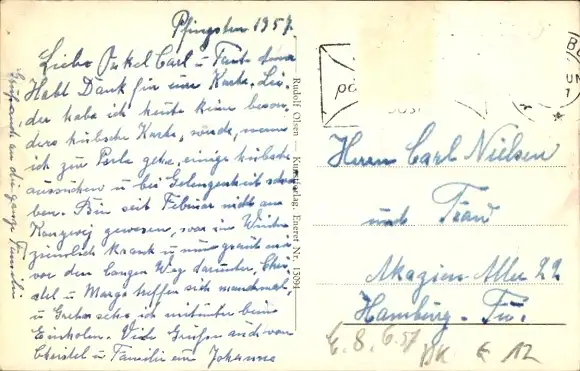 Pfingsten 1957.
Liebe Onkel Carl u Tante Anna
Habt Dank für eure Karte. Lei-
der habe ich heute keine beson-
ders hübsche Karte, würde, wenn
ich zur Perle gehe, einige hübsche
aussuchen u bei Gelegenheit schrei-
ben. Bin seit Februar nicht am
Kongevej gewesen, war im Winter
ziemlich krank u nun graut mir
vor dem langen Weg darunter, Chri-
stel u Marga treffen sich manchmal
u Grete sehe ich mitunter beim
Einholen. Viele Grüßen auch von
Christel u Familie eure Johanne
Grüß auch an die ganze Familie
Rudolf Olsen — Kunstforlag Eneret Nr. 15094
Herrn Carl Nielsen
und Frau
Akazien-Allee 22
Hamburg-Fu.
E. 8. 6. 57